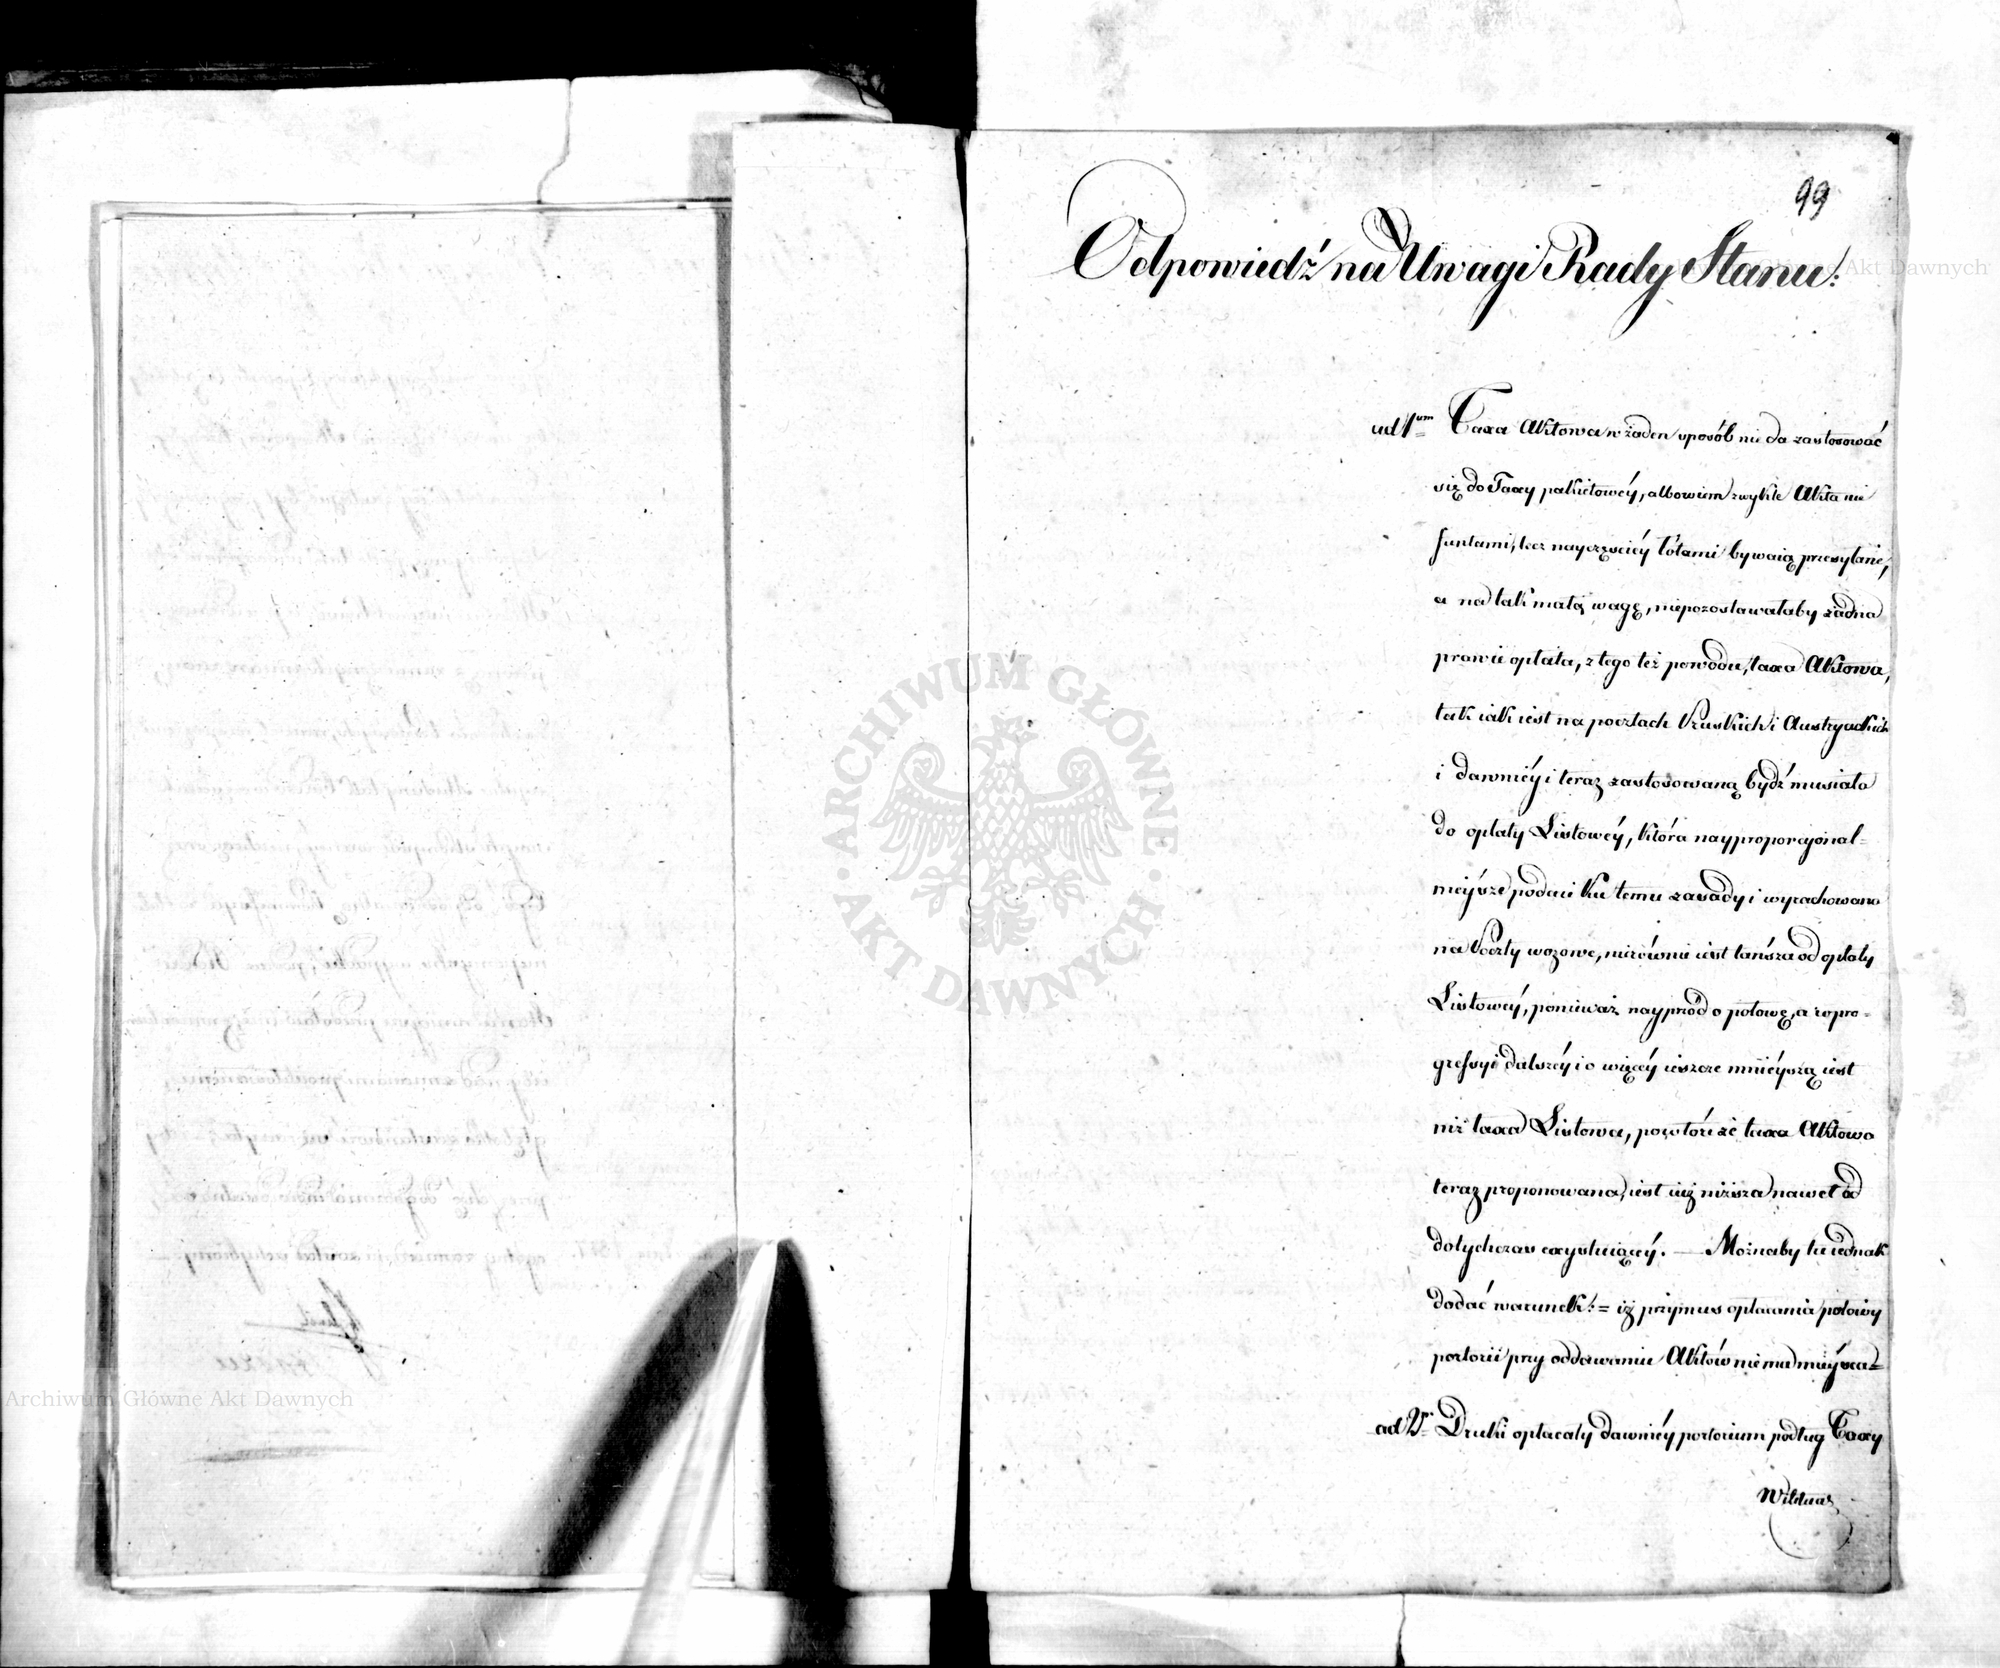 99
Odpowiedź na Uwagi Rady Stanu.
ad 1um Taxa Aktowa w żaden sposób nie da zastosować
się do Taxy pakietowéy, albowiem zwykle Akta nie
funtami, lecz nayczęściéy łótami bywaią przesyłane,
a na tak małą wagę, niepozostawałaby żadna
prawie opłata, z tego też powodu, taxa Aktowa,
tak iak iest na pocztach Pruskich i Austryackich
i dawniéy i teraz zastosowaną bydź musiała
do opłaty Listowéy, która nayproporcjonal-
nieysze podaie ku temu zasady i wyrachowano
na Poczty wozowe, nierównie iest tańsza od opłaty
Listowéy, ponieważ nayprzód o połowę, a w pro-
gressyi dalszéy i o więcéy ieszcze mnieyszą iest
niż taxa Listowa, powtóre że taxa Aktowa
teraz proponowana, iest iuż niższa nawet od
dotychczas exystuiącéy. — Możnaby tu iednak
dodać warunek: = iż przymus opłacania połowy
portorii przy oddawaniu Aktów nie ma mieysca =
ad 2. Druki opłacały dawniéy portorium podług Taxy
Archiwum Główne Akt Dawnych
ARCHIWUM GŁÓWNE AKT DAWNYCH
Archiwum Główne Akt Dawnych